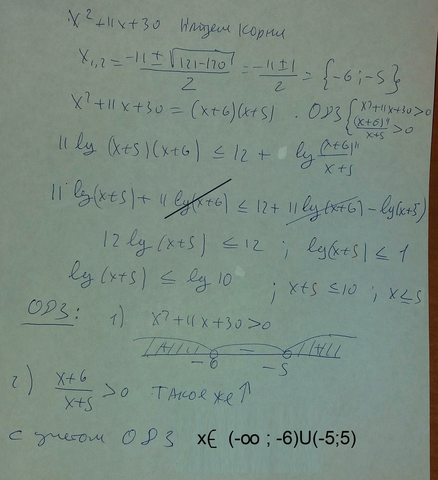 x² + 11x + 30 Найдем корни
x₁,₂ = (-11 ± √(121-120))/2 = (-11 ± 1)/2 = {-6; -5}
x² + 11x + 30 = (x+6)(x+5). ОДЗ { x² + 11x + 30 > 0
(x+6)¹¹/(x+5) > 0
11 lg (x+5)(x+6) ≤ 12 + lg (x+6)¹¹/(x+5)
11 lg(x+5) + 11 lg(x+6) ≤ 12 + 11 lg(x+6) - lg(x+5)
12 lg (x+5) ≤ 12 ; lg(x+5) ≤ 1
lg (x+5) ≤ lg 10 ; x+5 ≤ 10 ; x ≤ 5
ОДЗ: 1) x² + 11x + 30 > 0
-6 - -5
2) (x+6)/(x+5) > 0 Такое же ↑
с учетом ОДЗ x∈ (-∞ ; -6)U(-5;5)